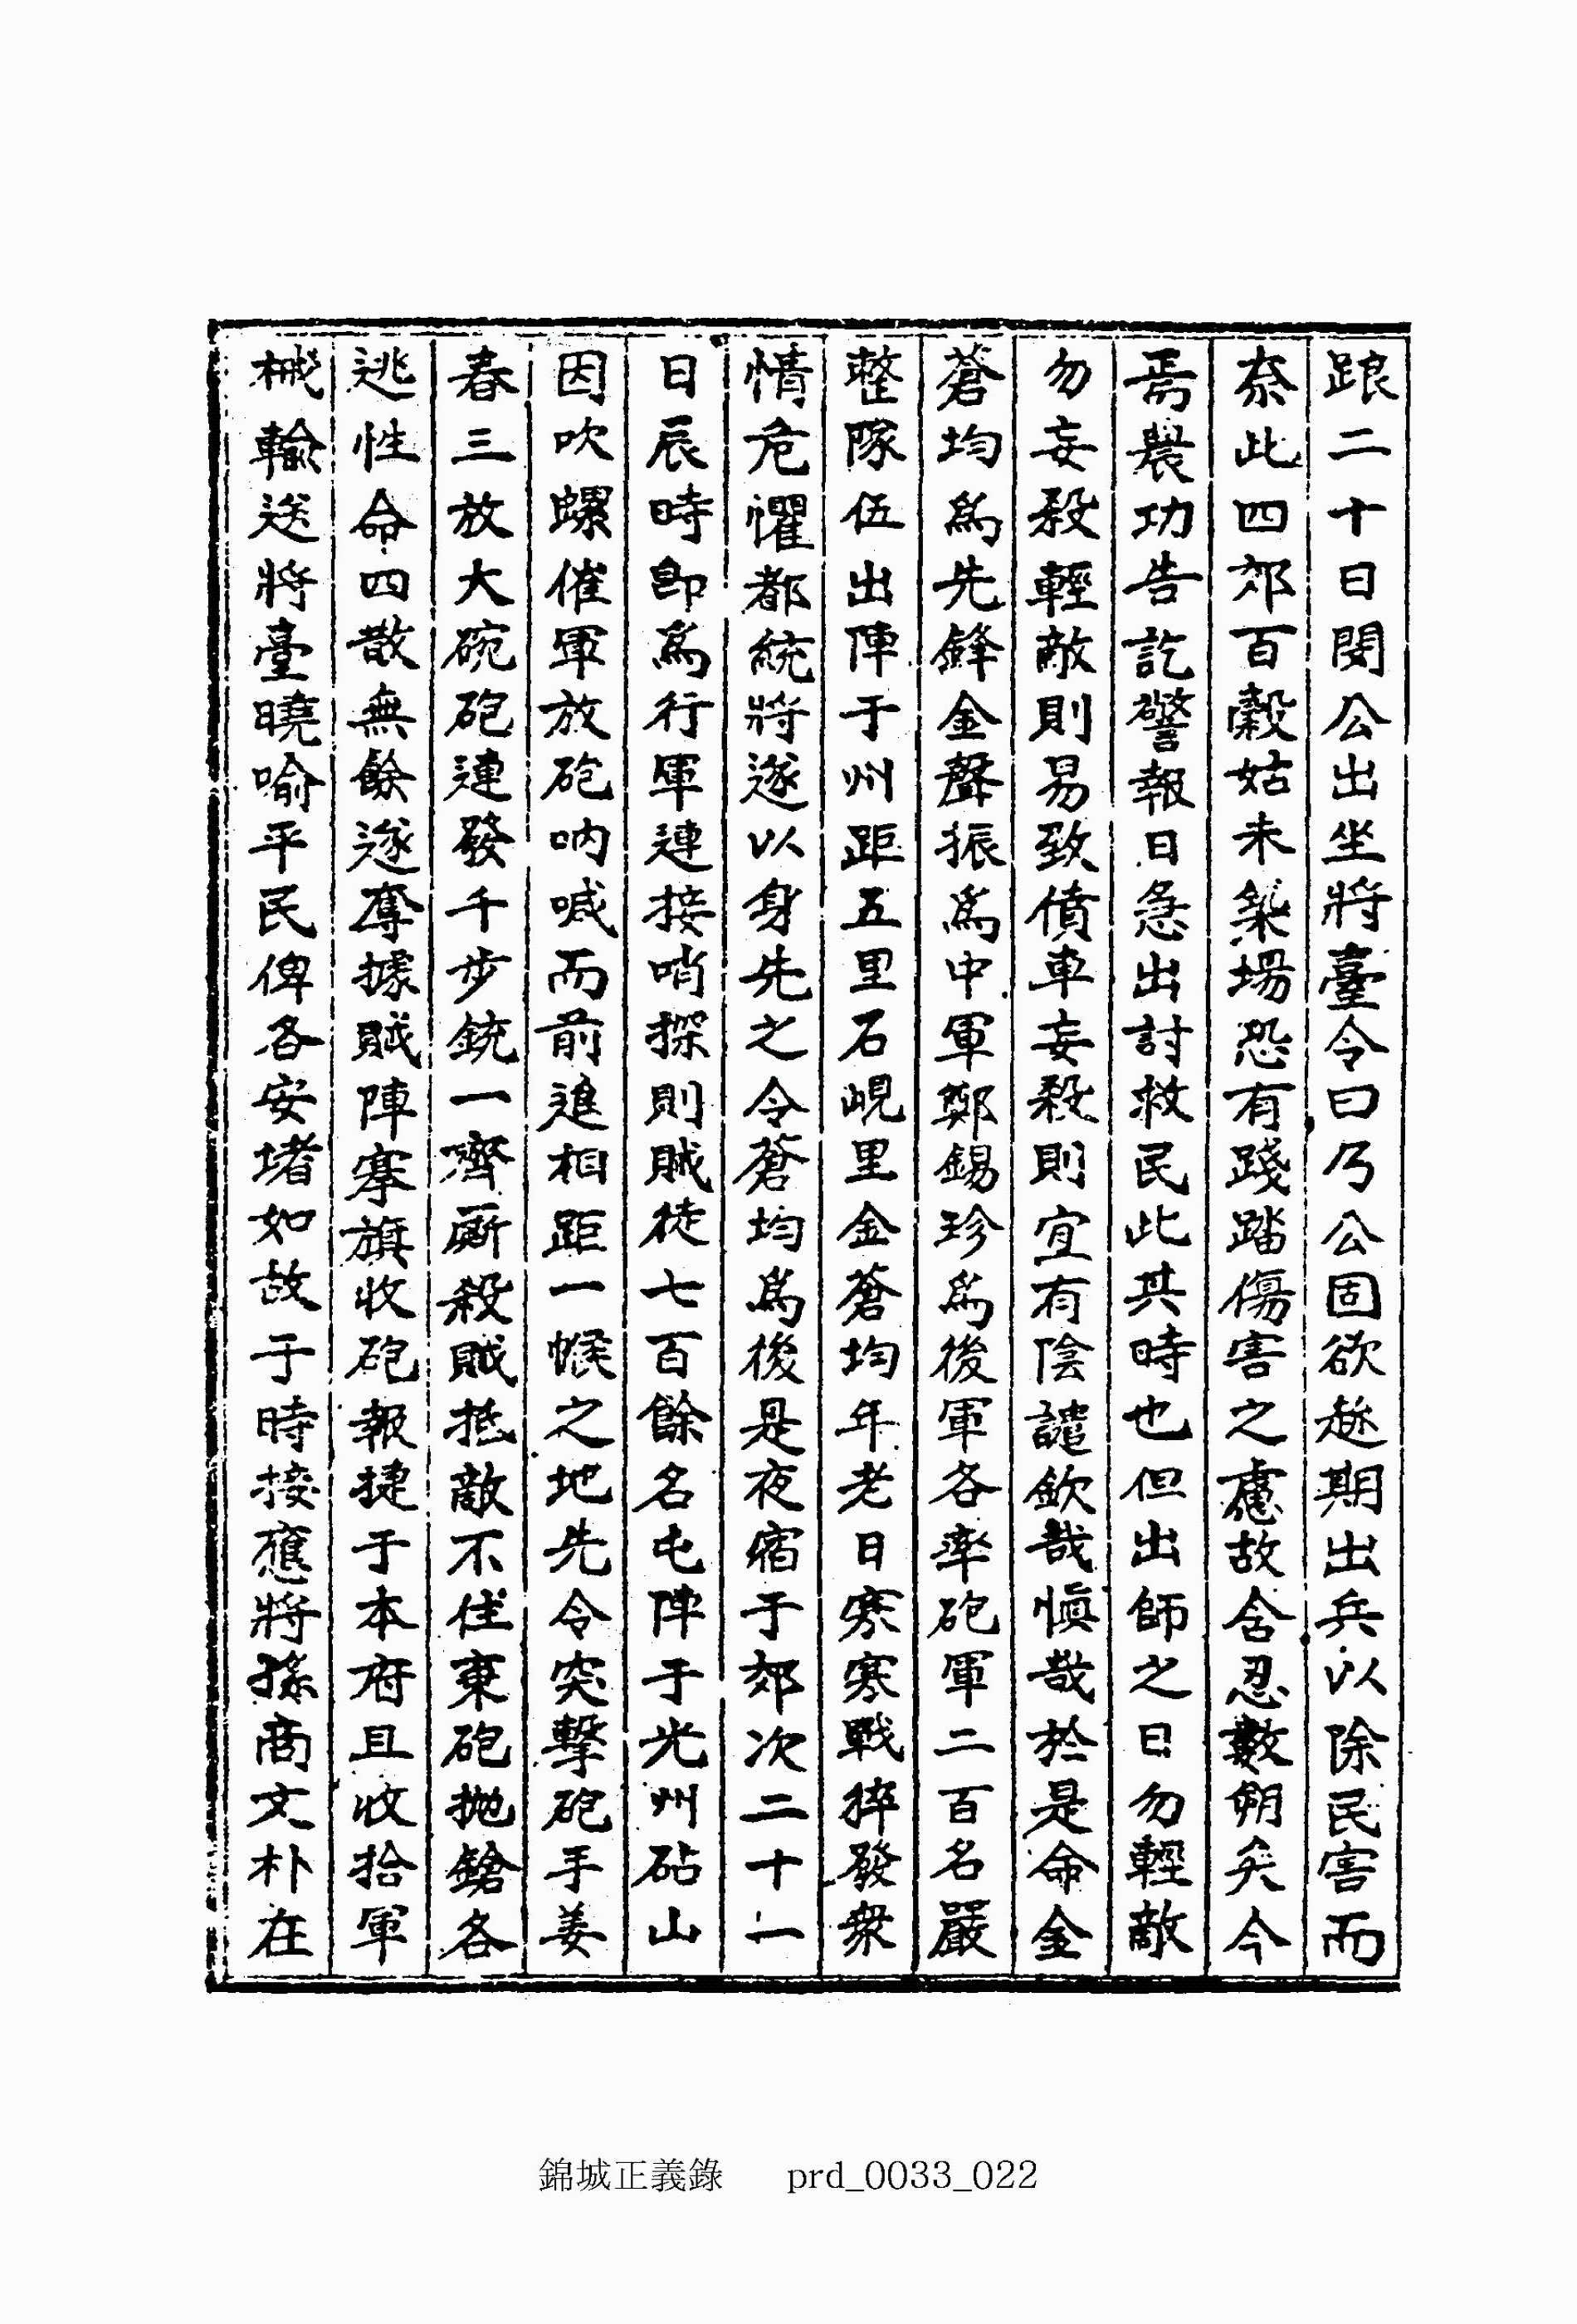 踉二十日閔公出坐將臺令曰乃公固欲趂期出兵以除民害而
奈此四郊百穀姑未築場恐有踐踏傷害之慮故含忍數朔矣今
焉農功告訖警報日急出討救民此其時也但出師之日勿輕敵
勿妄殺輕敵則易致僨車妄殺則宜有陰譴欽哉愼哉於是命金
蒼均爲先鋒金聲振爲中軍鄭錫珍爲後軍各率砲軍二百名嚴
整隊伍出陣于州距五里石峴里金蒼均年老日寒寒戰猝發衆
情危懼都統將遂以身先之令蒼均爲後是夜宿于郊次二十一
日辰時卽爲行軍連接哨探則賊徒七百餘名屯陣于光州砧山
因吹螺催軍放砲吶喊而前進相距一帿之地先令突擊砲手姜
春三放大碗砲連發千步銃一齊廝殺賊抵敵不住棄砲抛鎗各
逃性命四散無餘遂奪據賊陣搴旗收砲報捷于本府且收拾軍
械輸送將臺曉喩平民俾各安堵如故于時接應將孫商文朴在
錦城正義錄 prd_0033_022